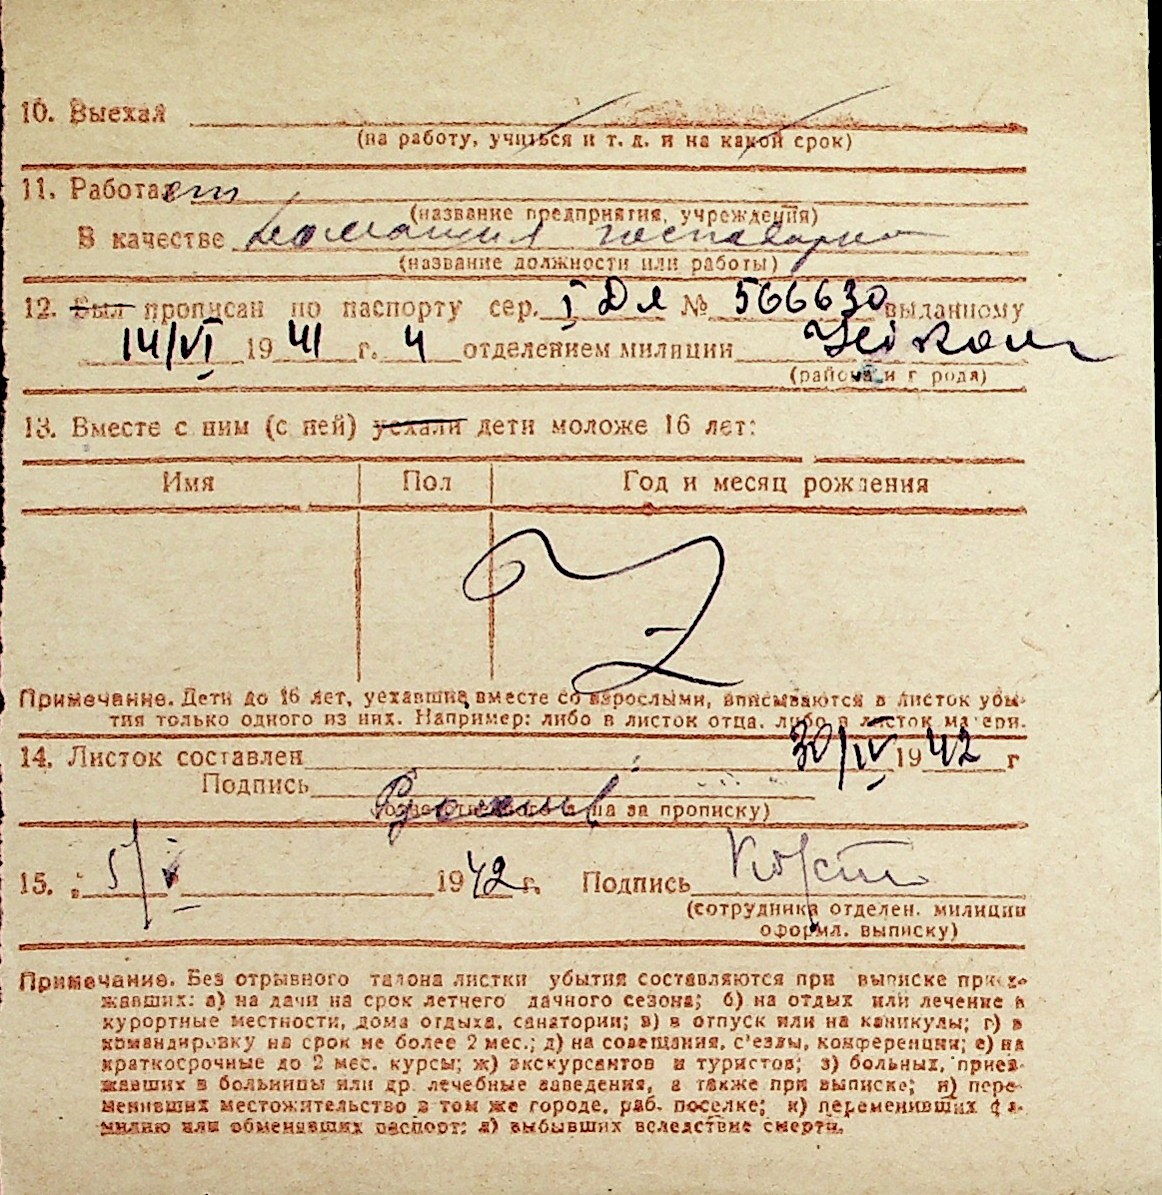 10. Выехал
(на работу, учиться и т. д. и на какой срок)
11. Работает
(название предприятия, учреждения)
В качестве домашня господарка
(название должности или работы)
12. Был прописан по паспорту сер. I ДЯ № 566630 выданному
14/VI 1941 г. 4 отделением милиции
(района и г рода)
13. Вместе с ним (с ней) уехали дети моложе 16 лет:
Имя Пол Год и месяц рождения
Примечание. Дети до 16 лет, уехавшие вместе со взрослыми, вписываются в листок убы-
тия только одного из них. Например: либо в листок отца, либо в листок матери.
14. Листок составлен 30/IV 1942 г
Подпись
(ответственного лица за прописку)
15. 5/V 1942 г. Подпись
(сотрудника отделен. милиции
оформл. выписку)
Примечание. Без отрывного талона листки убытия составляются при выписке приез-
жавших: а) на дачи на срок летнего дачного сезона; б) на отдых или лечение в
курортные местности, дома отдыха, санатории; в) в отпуск или на каникулы; г) в
командировку на срок не более 2 мес.; д) на совещания, с'езды, конференции; е) на
краткосрочные до 2 мес. курсы; ж) экскурсантов и туристов; з) больных, приез-
жавших в больницы или др. лечебные заведения, а также при выписке; и) пере-
менивших местожительство в том же городе, раб. поселке; к) переменивших фа-
милию или обменявших паспорт; л) выбывших вследствие смерти.